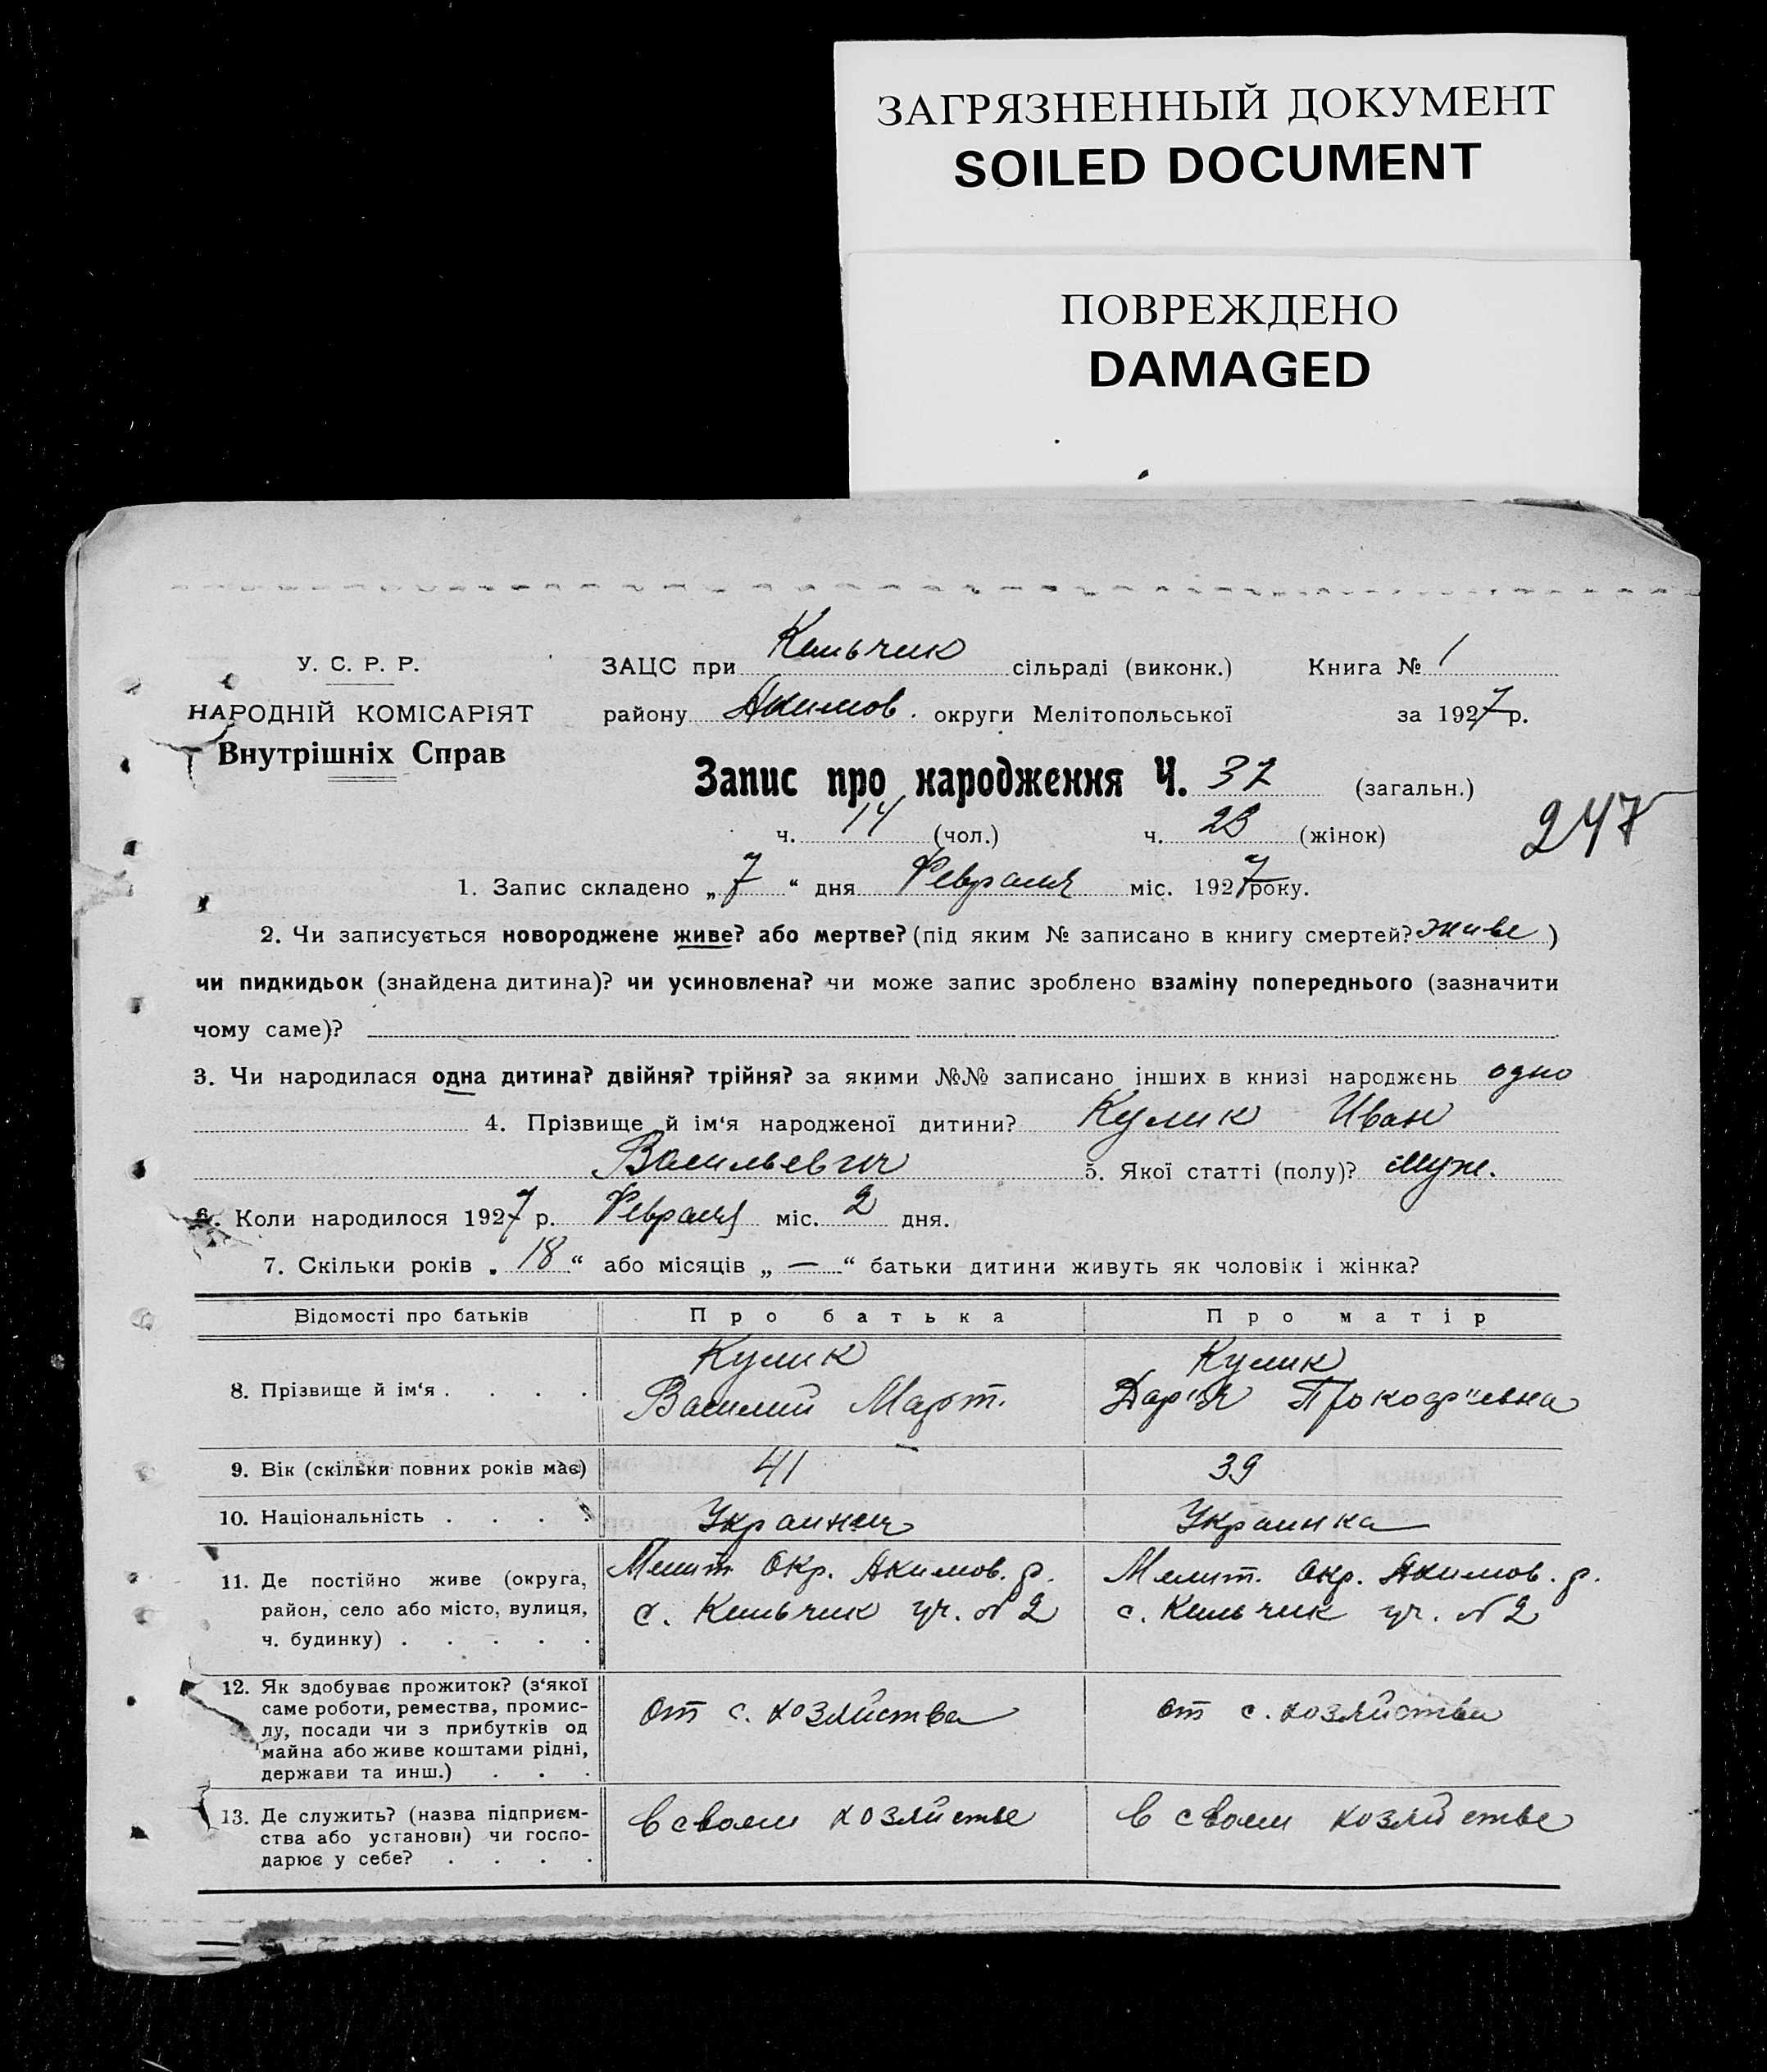 ЗАГРЯЗНЕННЫЙ ДОКУМЕНТ
SOILED DOCUMENT
ПОВРЕЖДЕНО
DAMAGED
У. С. Р. Р.
НАРОДНІЙ КОМІСАРІЯТ
Внутрішніх Справ
ЗАЦС при Кильчик сільраді (виконк.) Книга № 1
району Акимов. округи Мелітопольської за 1927 р.
Запис про народження Ч. 37 (загальн.)
ч. 14 (чол.) ч. 23 (жінок)
247
1. Запис складено „ 7 “ дня Февраля міс. 1927 року.
2. Чи записується новороджене живе? або мертве? (під яким № записано в книгу смертей? живе )
чи пидкидьок (знайдена дитина)? чи усиновлена? чи може запис зроблено взаміну попереднього (зазначити
чому саме)?
3. Чи народилася одна дитина? двійня? трійня? за якими №№ записано інших в книзі народжень одно
4. Прізвище й ім‘я народженої дитини? Кулик Иван
Васильевич 5. Якої статті (полу)? муж.
6. Коли народилося 1927 р. Февраля міс. 2 дня.
7. Скільки років „ 18 “ або місяців „ — “ батьки дитини живуть як чоловік і жінка?
Відомості про батьків Про батька Про матір
8. Прізвище й ім‘я . . . .
Кулик
Василий Март.
Кулик
Дар'я Прокоф'иевна
9. Вік (скільки повних років має) 41 39
10. Національність . . . . Украинец Украинка
11. Де постійно живе (округа,
район, село або місто, вулиця,
ч. будинку) . . . . .
Мелит. Окр. Акимов. р.
с. Кильчик уч. № 2
Мелит. Окр. Акимов. р.
с. Кильчик уч. № 2
12. Як здобуває прожиток? (з‘якої
саме роботи, ремества, промис-
лу, посади чи з прибутків од
майна або живе коштами рідні,
держави та инш.) . . .
от с. хозяйства
от с. хозяйства
13. Де служить? (назва підприєм-
ства або установи) чи госпо-
дарює у себе? . . . .
в своем хозяйстве
в своем хозяйстве